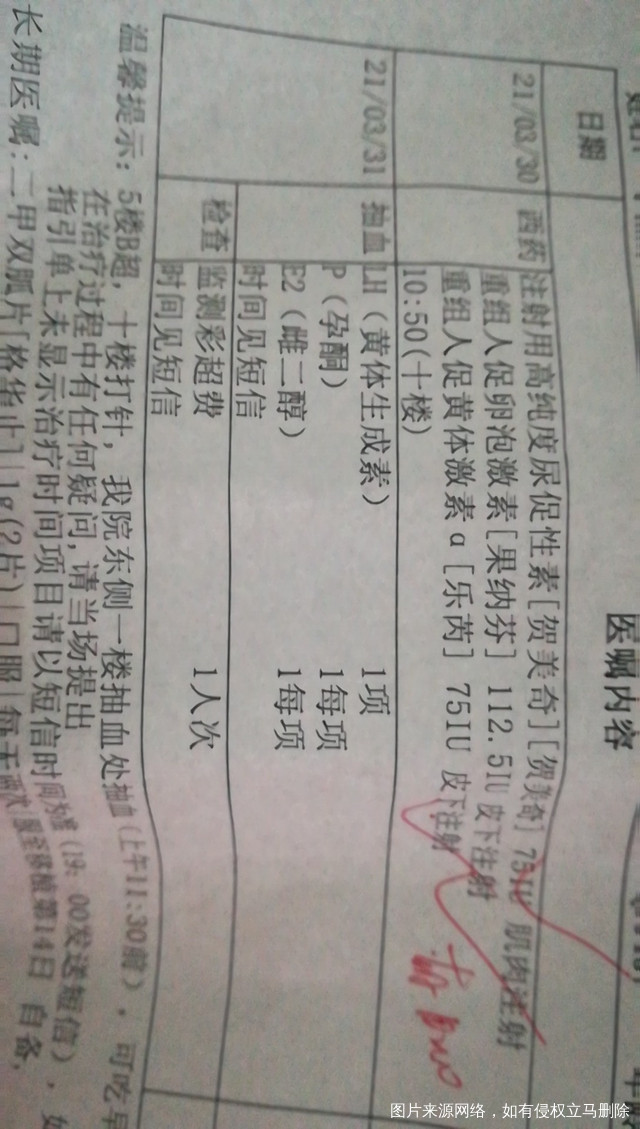 日期 医嘱内容
21/03/30 西药 注射用高纯度尿促性素[贺美奇][贺美奇] 75IU 肌肉注射
重组人促卵泡激素[果纳芬] 112.5IU 皮下注射
重组人促黄体激素α[乐芮] 75IU 皮下注射
10:50(十楼)
21/03/31 抽血 LH（黄体生成素） 1项
P（孕酮） 1每项
E2（雌二醇） 1每项
时间见短信
检查 监测彩超费 1人次
时间见短信
温馨提示：5楼B超，十楼打针，我院东侧一楼抽血处抽血（上午11:30前），可吃早
在治疗过程中有任何疑问，请当场提出
指引单上未显示治疗时间项目请以短信时间为准（19：00发送短信），如
长期医嘱:二甲双胍片[格华止]|1g(2片)|口服|每天两次|服至移植第14日 自备,
图片来源网络，如有侵权立马删除